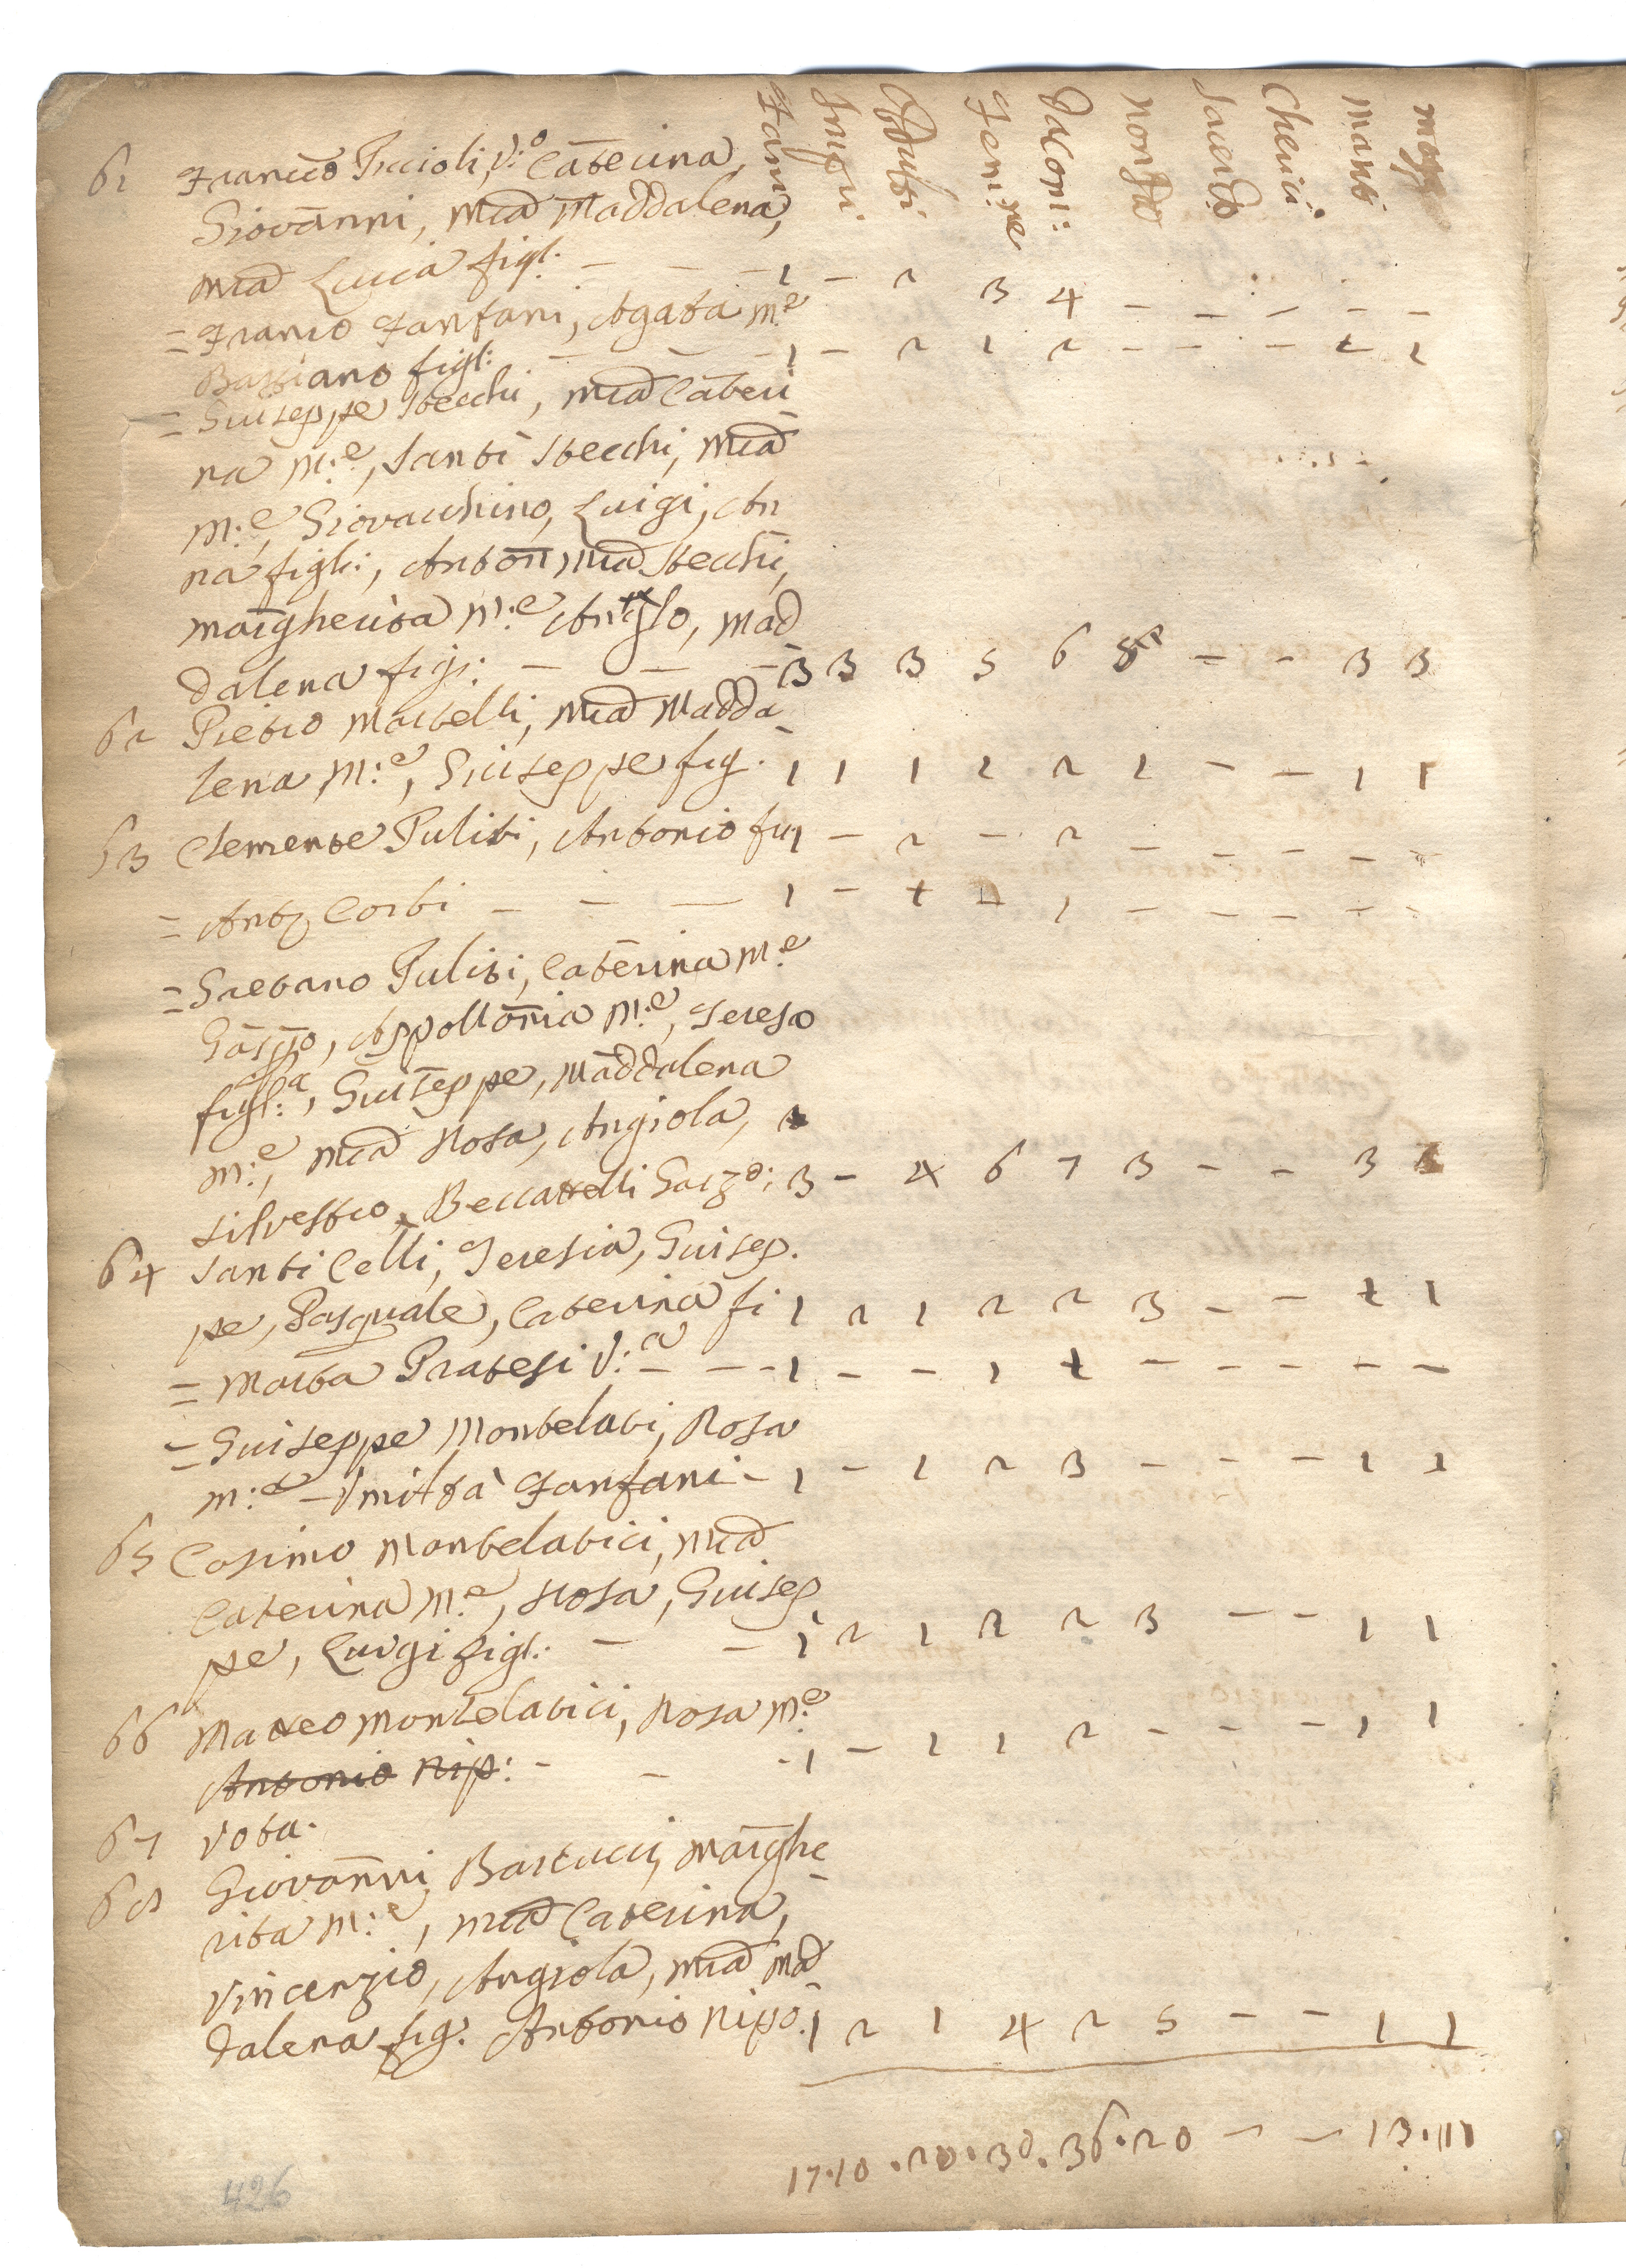 Fami Impu: Adulti Femi:ne Dacom: nonDo Sacerdo Cherici mariti mogi
61 Franco Piccioli, V:o Caterina,
Giovanni, Mia Maddalena,
Mia Lucia figl: — — — 1 — 2 3 4 — — — — —
= Franco Fanfani, Agata M:e
Bastiano figl: — — — 1 — 2 1 2 — — — 1 1
= Giuseppe Stecchi, Mia Cateri
na M:e, Santi Stecchi, Mia
M:e, Giovacchino, Luigi, An
na figli:, Anton Mia Stecchi,
Margherita M:e Anglo, Mad
dalena figl: — — — 3 3 3 5 6 — — 3 3
62 Pietro Martelli, Mia Madda
lena M:e, Giuseppe fig. 1 1 1 2 2 1 — — 1 1
63 Clemente Puliti, Antonio fra 1 — 2 — 2 — — — — —
= Anto Corti — — — 1 — 1 — 1 — — — — —
= Gaetano Puliti, Caterina M:e
Gaspo, Appollonia M:e, Teresa
figl:a, Giuseppe, Maddalena
M:e, Mia Rosa, Angiola,
Silvestro, Beccattelli Garzo: 3 — 4 6 7 3 — — 3
64 Santi Celli, Teresia, Giusep.
pe, Pasquale, Caterina fi 1 2 1 2 2 3 — — 1 1
= Marta Pratesi V:a — — — 1 — — 1 1 — — — — —
= Giuseppe Montelati, Rosa
M:e — Umiltà Fanfani — 1 — 1 2 3 — — — 1 1
65 Cosimo Montelatici, Mia
Caterina M:e, Rosa, Giusep
pe, Luigi figl: — — 1 2 1 2 2 3 — — 1 1
66 Matteo Montelatici, Rosa M:e
Antonio Nip: — — — 1 — 1 1 2 — — — 1 1
67 Vota.
68 Giovanni Bartucci, Marghe
rita M:e, Mia Caterina,
Vincenzio, Angiola, Mia Mad
dalena fig: Antonio Nipo. 1 2 1 4 2 5 — — 1 1
17 . 10 . 20 . 30 . 36 . 20 — — 13 . 11
426